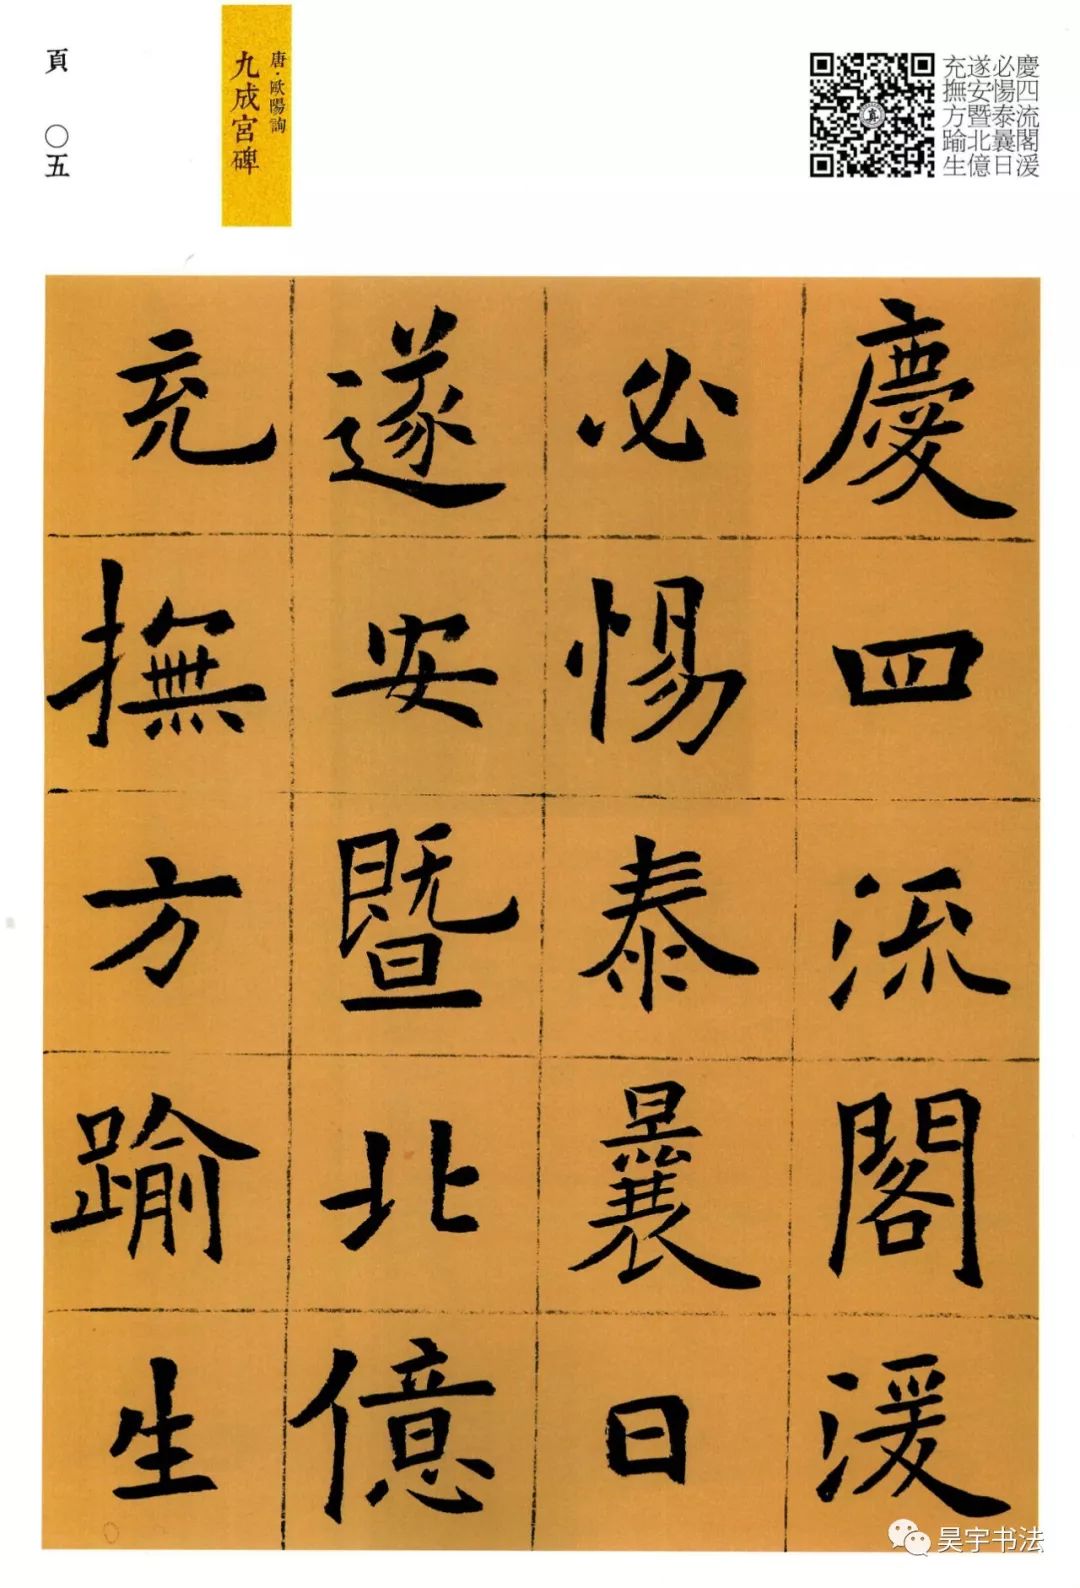 慶四流閣湲
必惕泰曩日
遂安暨北億
充撫方踰生
唐·歐陽詢
九成宮碑
頁 〇五
慶四流閣湲
必惕泰曩日
遂安暨北億
充撫方踰生
昊宇书法